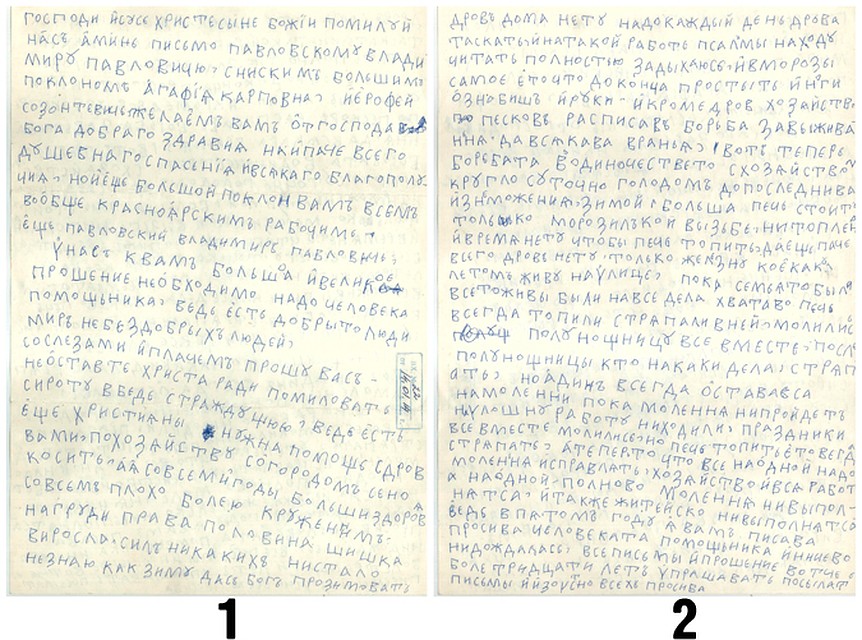 ГОСПОДИ ЙСУСЕ ХРИСТЕ СЫНЕ БОЖІИ ПОМИЛУЙ
НАСЪ АМИНЬ ПИСЬМО ПАВЛОВСКОМУ ВЛАДИ
МИРУ ПАВЛОВИЧЮ, СНИСКИМЪ БОЛЬШИМЪ
ПОКЛОНОМЪ АГАФІА КАРПОВНА, ЙЕРОФЕЙ
СОЗОНТЕВИЧЬ ЖЕЛАЕМЪ ВАМЪ ОТ ГОСПОДА
БОГА ДОБРАГО ЗДРАВИЯ НАЙПАЧЕ ВСЕГО
ДУШЕВНАГО СПАСЕНЇА ЙВСЯКАГО БЛАГОПОЛУ-
ЧИА, НОЙЕЩЕ БОЛЬШОЙ ПОКЛОН ВАМЪ ВСЕМЪ
ВООБЩЕ КРАСНОАРСКИМЪ РАБОЧИМЪ,
ЕЩЕ ПАВЛОВСКИЙ ВЛАДИМИРЬ ПАВЛОВИЧЬ,
УНАСЪ КВАМЪ БОЛЬША ЙВЕЛИКОЕ
ПРОШЕНИЕ НЕОБХОДИМО НАДО ЧЕЛОВЕКА
ПОМОЩЬНИКА, ВЕДЬ ЕСТЬ ДОБРЫ ТО ЛЮДИ
МИРЪ НЕ БЕЗ ДОБРЫХЪ ЛЮДЕЙ,
СОСЛЕЗАМИ ЙПЛАЧЕМЪ ПРОШУ ВАСЪ-
НЕОСТАВТЕ ХРИСТА РАДИ ПОМИЛОВАТЬ
СИРОТУ ВБЕДЕ СТРАЖДУЩЮЮ, ВЕДЬ ЕСТЬ
ЕЩЕ ХРИСТИАНЫ НУЖНА ПОМОЩЬ СДРОВ
ВАМИ, ПОХОЗАЙСТВУ СОГОРОДОМЪ СЕНО
КОСИТЬ, АА СОВСЕМ ЙГОДЫ БОЛЬШИ ЗДОРОВ
СОВСЕМЪ ПЛОХО БОЛЕЮ КРУЖЕНИМЪ-
НАГРУДИ ПРАВА ПОЛОВИНА ШИШКА
ВИРОСЛА, СИЛЪ НИКАКИХЪ НИСТАЛО
НЕЗНАЮ КАК ЗИМУ ДАСЬ БОГЬ ПРОЗИМОВАТЬ
1
ДРОВЪ ДОМА НЕТУ НАДО КАЖДЫЙ ДЕНЬ ДРОВА
ТАСКАТЬ ЙНАТАКОЙ РАБОТЬ ПСАЛМЫ НАХОДУ
ЧИТАТЬ ПОЛНОСТЬЮ ЗАДЫХАЮСЬ, ЙВМОРОЗЫ
САМОЕ ЕТО ЧТО ДОКОНЦА ПРОСТЫТЬ ЙНОГИ
ОЗНАБИШЪ ЙРУКИ- ЙКРОМЕ ДРОВ ХОЗАЙСТВО
ПЕСКОВЪ РАСПИСАВЪ БОРЬБА ЗАВЫЖИВА
ННА, ДА ВСАКАВА ВРАНЬА, ВОТЬ ТЕПЕРЬ
БОРЬБАТА ВОДИНОЧЕСТВЕ ТО СХОЗАЙСТВОМ
КРУГЛО СУТОЧНО ГОЛОДОМЪ ДОПОСЛЕДНИВА
ИЗНМОЖЕНИА, ЗИМОЙ БОЛЬША ПЕЧЬ СТОИТЬ
ТОЛЬКО МОРОЗИЛЪКОЙ ВЫЗЬБЕ, НИТОПЛЕН
ЙВРЕМА НЕТУ ЧТОБЫ ПЕЧЬ ТОПИТЬ, ДАЕЩЕ ПАЧЕ
ВСЕГО ДРОВЪ НЕТУ, ТОЛЬКО ЖЕЛЗНУ КОЕКАК,
ЛЕТОМЪ ЖИВУ НАУЛИЦЕ, ПОКА СЕМЬЯТО БЫЛА
ВСЕТО ЖИВЫ БЫЛИ НАВСЕ ДЕЛА ХВАТАВО ПЕЧЬ
ВСЕГДА ТОПИЛИ СТРАПАЛИ ВНЕЙ, МОЛИЛИСЬ
ПОЛУНОЩНИЦУ ВСЕ ВМЕСТЕ, ПОСЛЕ
ПОЛУНОЩНИЦЫ КТО НАКАКИ ДЕЛА, СТРАП
АТЬ, НОАДИНЪ ВСЕГДА ОСТАВАВСА
НАМОЛЕННИ ПОКА МОЛЕННА НИПРОЙДЕТЬ
НУЛОШНУ РАБОТУ НИХОДИЛИ, ПРАЗДНИКИ
ВСЕ ВМЕСТЕ МОЛИЛИСЬ, НО ПЕЧЬ ТОПИТЬ ЕТО ВЕГДА
СТРАПАТЬ, АТЕПЕРТО ЧТО ВСЕ НАОДНОЙ НАДО
МОЛЕННА ИСПРАВЛАТЬ, ХОЗАЙСТВО ЙВСА РАБОТ
А НАОДНОЙ, ПОЛНОВО МОЛЕННА НИВЫПОЛ-
НАТСА, ЙТАКЖЕ ЖИТЕЙСКО НИВЫПОЛНАТСА
ВЕДЬ ВПАТОМЪ ГОДУ А ВАМЪ ПИСАВА
ПРОСИВА ЧЕЛОВЕКАТА ПОМОЩЬНИКА ЙНИЧЕВО
НИДОЖДАЛАСЬ, ВСЕ ПИСЬМЫ ЙПРОШЕНИЕ ВОТЧЕ
БОЛЕ ТРИДЦАТИ ЛЕТЬ УПРАШАВАТЬ ПОСЫЛАТ
ПИСЬМЫ ЙЙЗОУСНО ВСЕХЬ ПРОСИВА
2